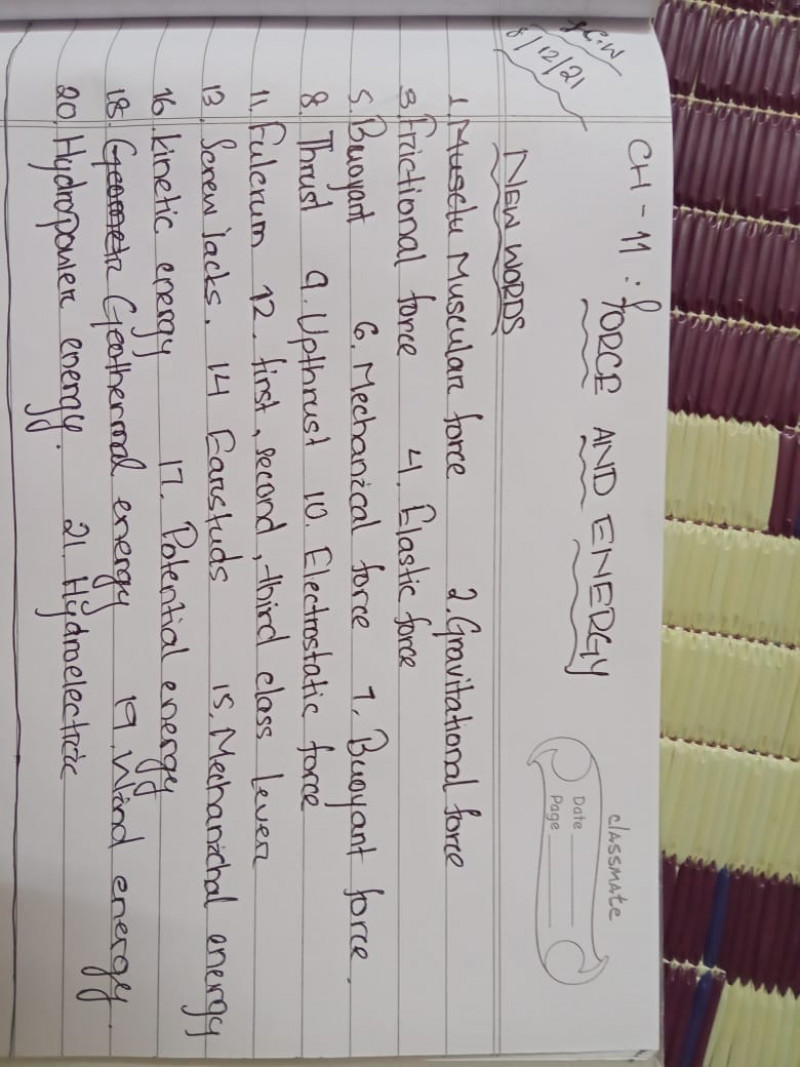 C.W
8/12/21
classmate
Date
Page
CH - 11 : FORCE AND ENERGY
NEW WORDS
1. Musclu Muscular force 2. Gravitational force
3. Frictional force 4. Elastic force
5. Buoyant 6. Mechanical force 7. Buoyant force.
8. Thrust 9. Upthrust 10. Electrostatic force
11. Fulcrum 12. first, second, third class lever
13. Screw jacks. 14 Earstuds 15. Mechanichal energy
16. kinetic energy 17. Potential energy
18. Geothermal energy 19. Wind energy.
20. Hydropower energy. 21. Hydroelectric